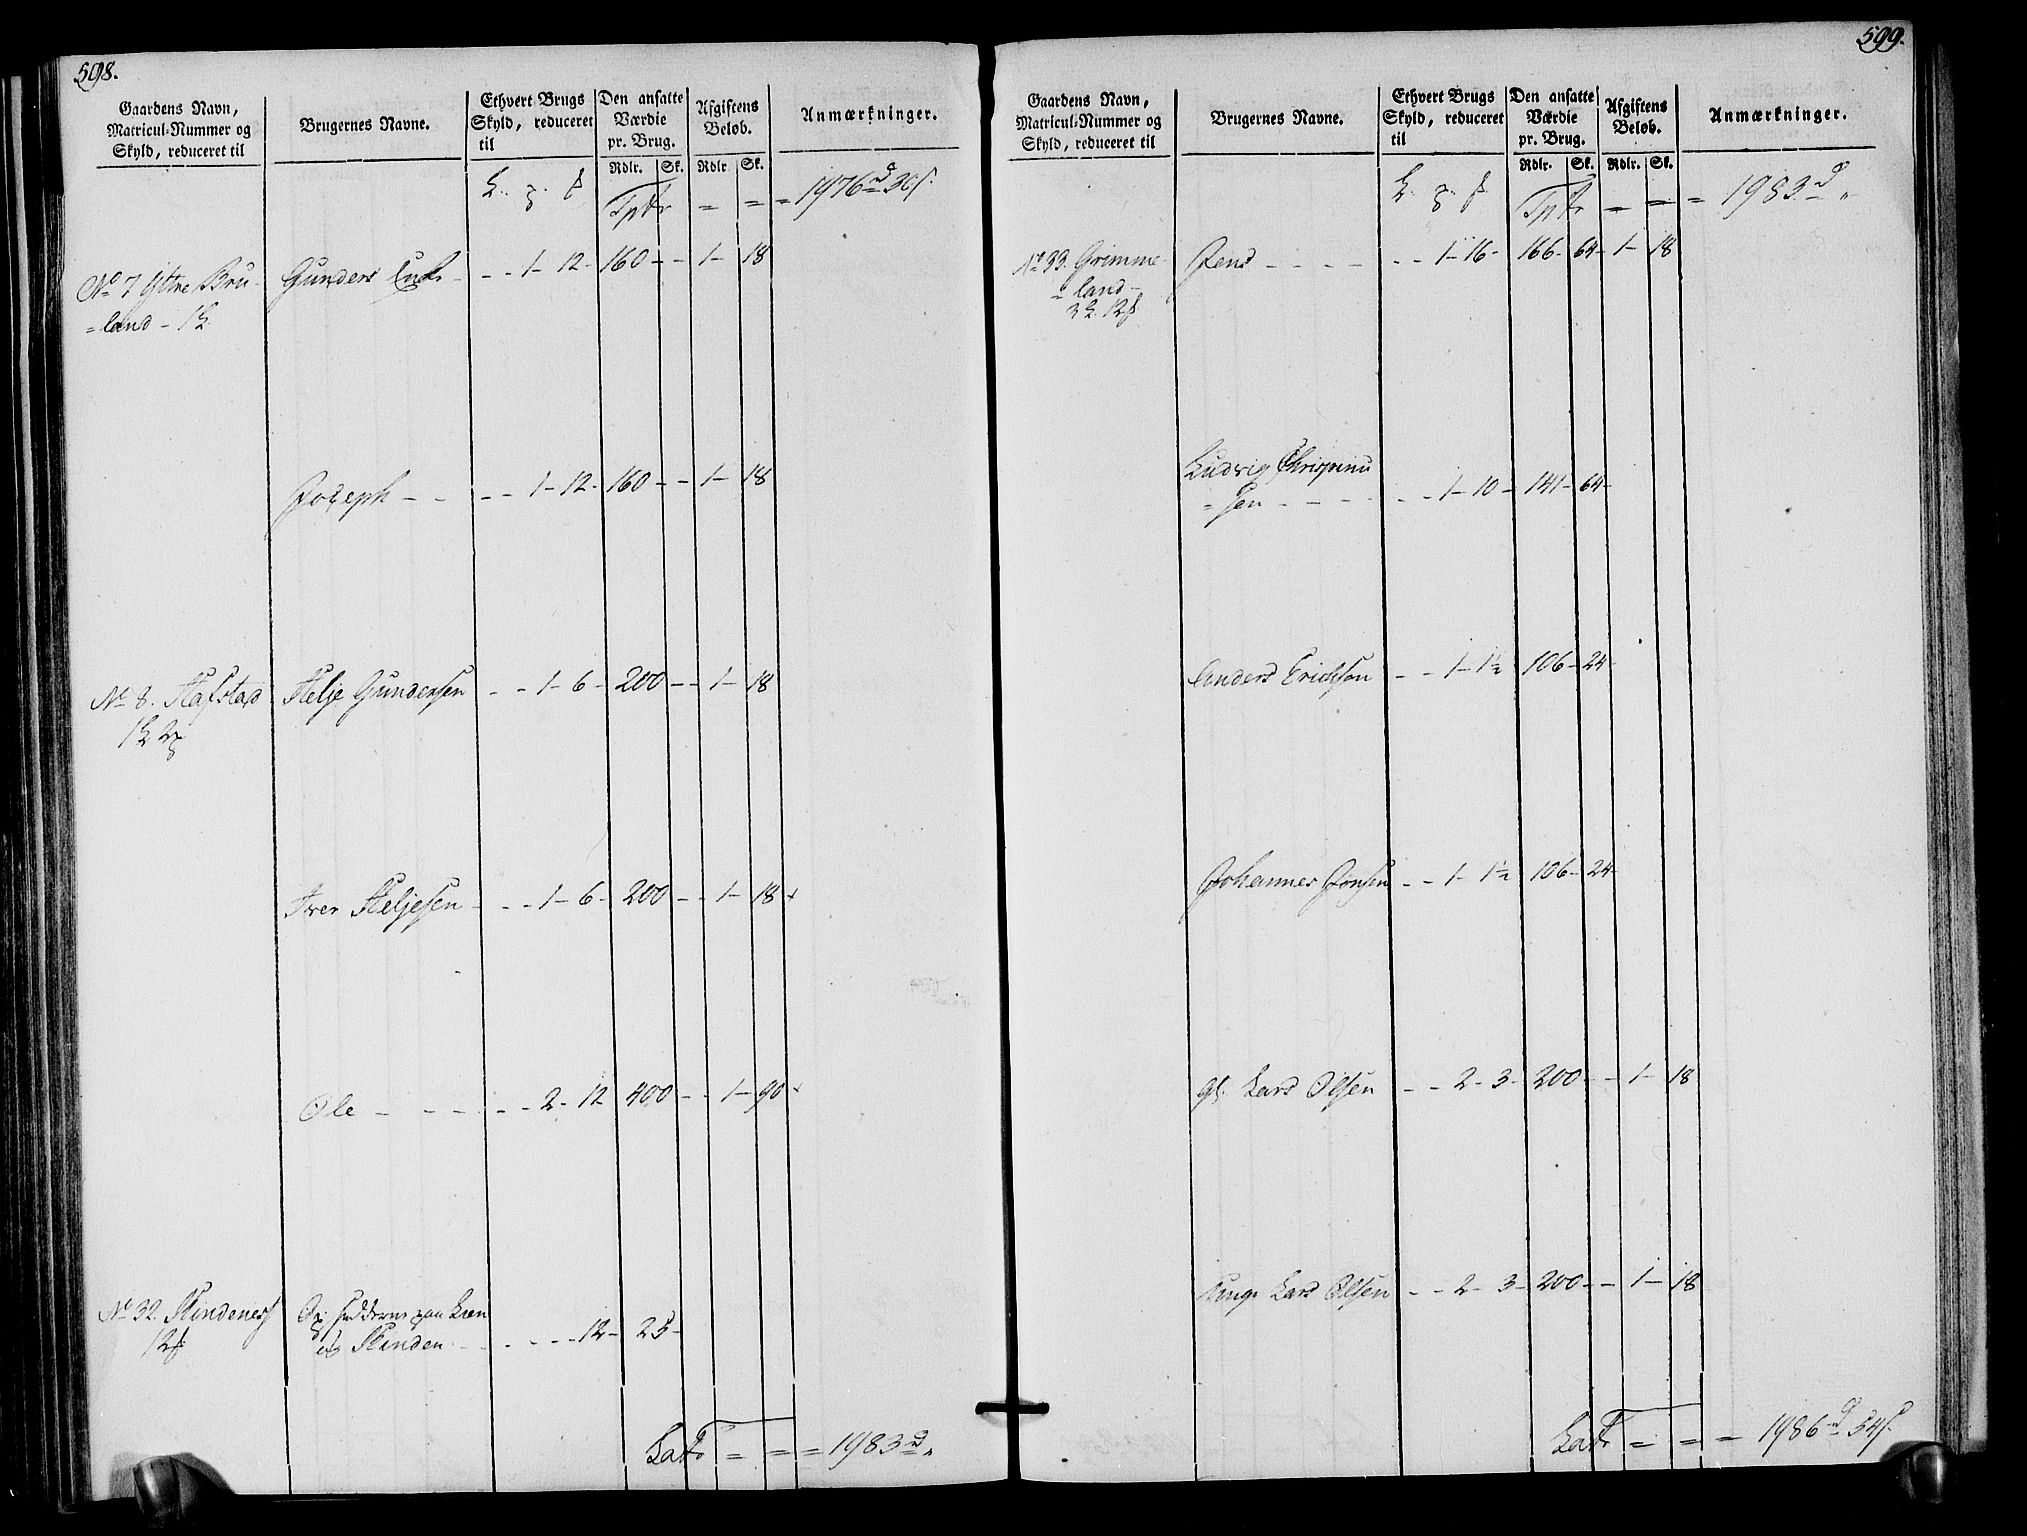 598.
Gaardens Navn, Matricul-Nummer og Skyld, reduceret til
Brugernes Navne.
Ethvert Brugs Skyld, reduceret til
Den ansatte Værdie pr. Brug.
Afgiftens Beløb.
Anmærkninger.
Rdlr. Sk. Rdlr. Sk.
Tptr = = = 1976 d 30 s.
No 7 Ytre Bru- Gunders - - 1- 12- 160 - - 1- 18
=land - 1
Joseph - - - - 1- 12- 160 - - 1- 18
No 8. Hafstad Helje Gundersen - - 1- 6- 200 - - 1- 18
1 2
Iver Heljesen - - - 1- 6- 200 - - 1- 18 +
Ole - - - - - 2- 12 400 - - 1- 90 +
No 32. Kindenes Opsidderne paa Lien
12 og Kinden - - - - 12- 25-
Latr = = = 1983 d „
599.
Gaardens Navn, Matricul-Nummer og Skyld, reduceret til
Brugernes Navne.
Ethvert Brugs Skyld, reduceret til
Den ansatte Værdie pr. Brug.
Afgiftens Beløb.
Anmærkninger.
Rdlr. Sk. Rdlr. Sk.
Tptr = = = 1983 d „
No 33. Grimme- Jens - - - - - - 1- 16- 166- 64- 1- 18
=land-
3 12
Ludvig Chrispinu
=sen - - - - - - 1- 10- 141- 64-
Anders Erichsen - - 1- 1½ 106- 24-
Johannes Jonsen - - 1- 1½ 106- 24-
gl. Lars Olsen - - 2- 3- 200 - - 1- 18
unge Lars Olsen - - 2- 3- 200 - - 1- 18
Latr = = = 1986 d 54 s.